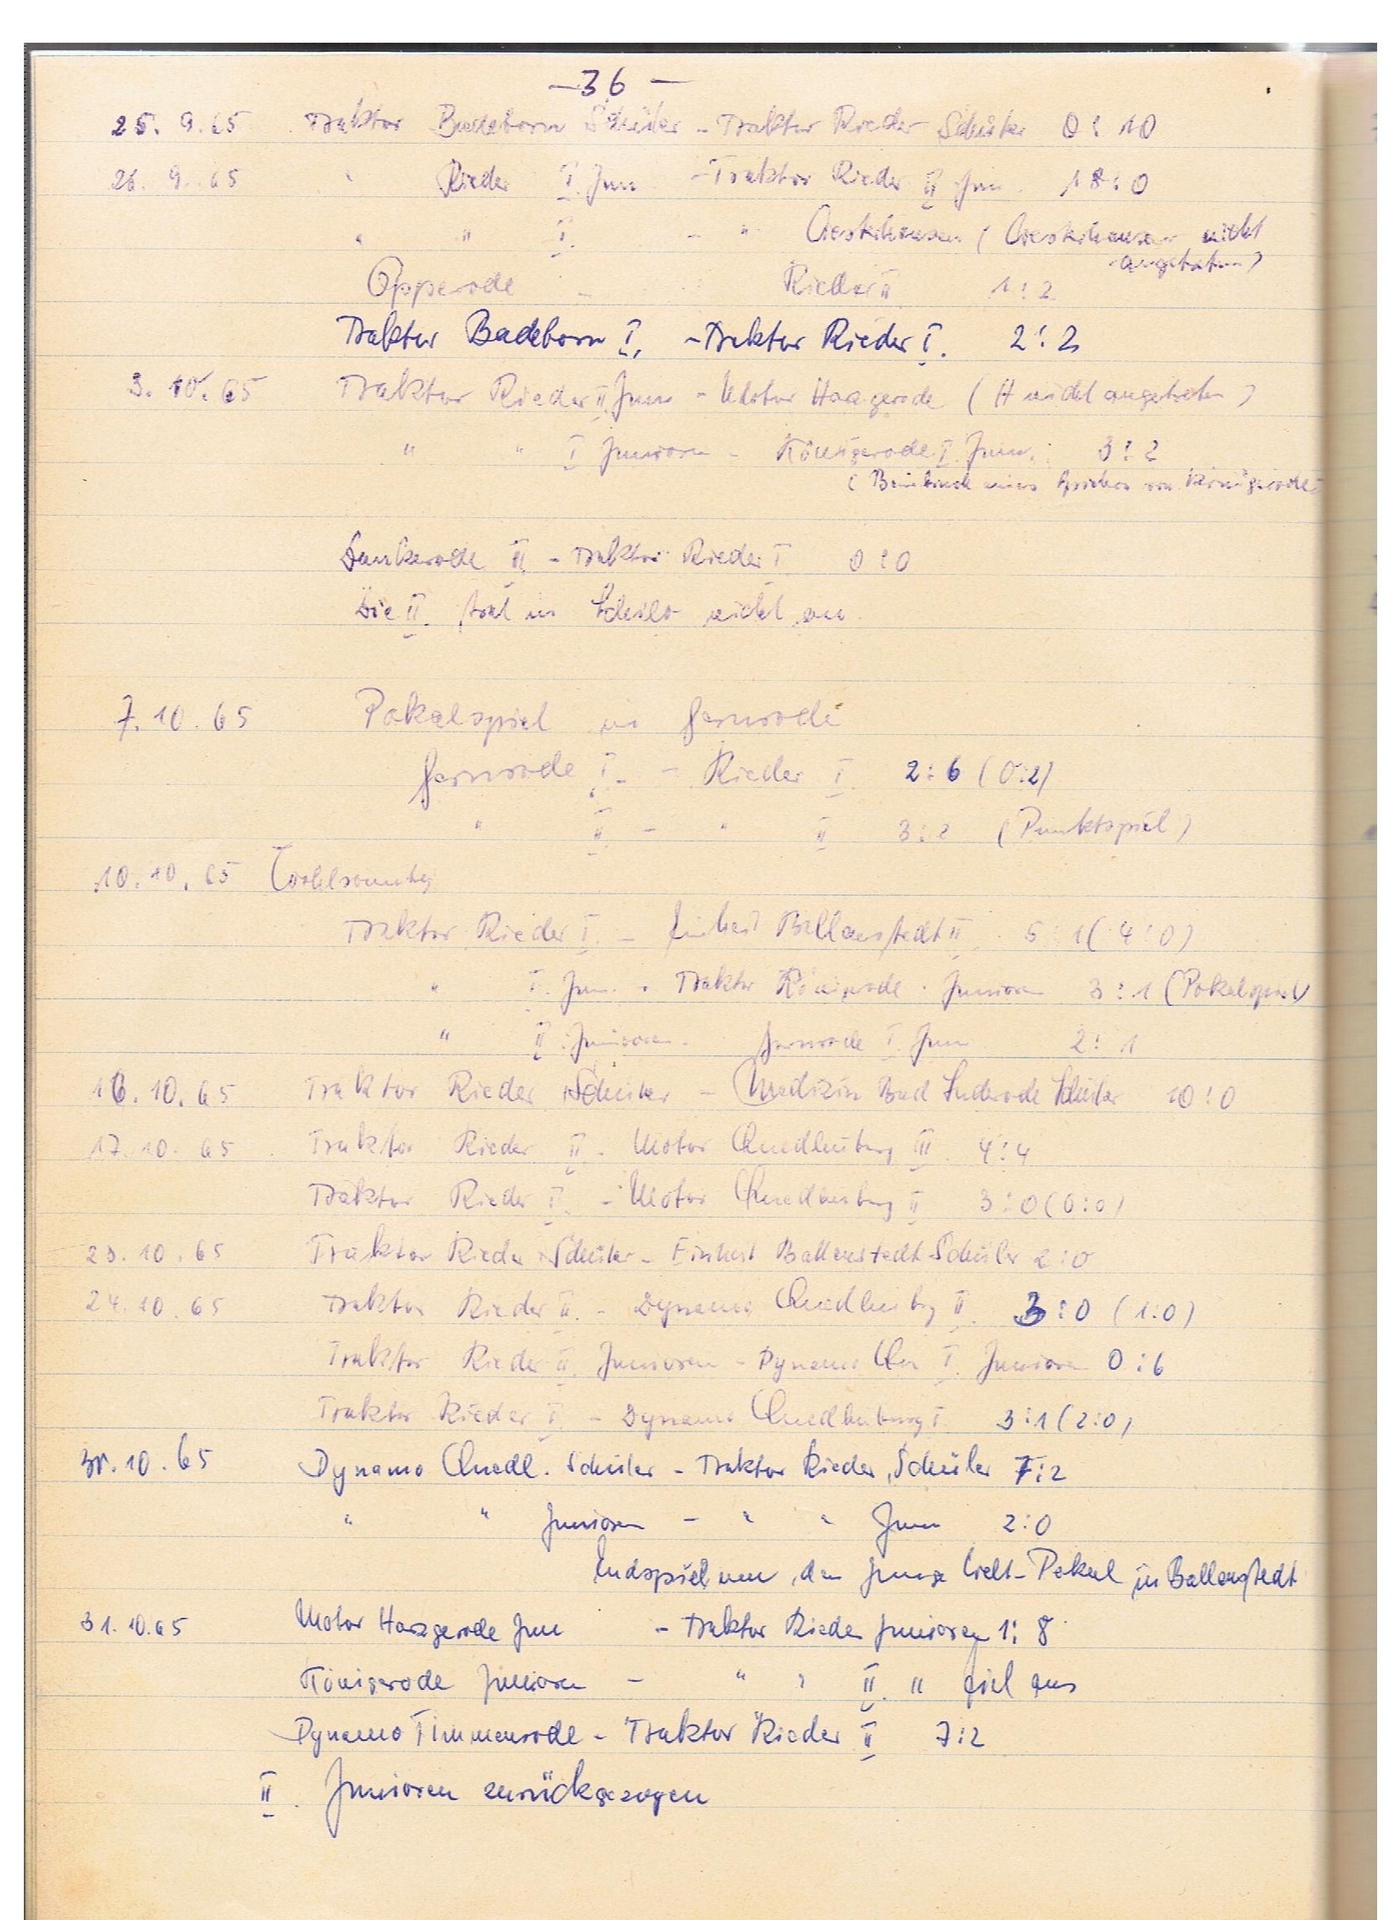 — 36 —
25. 9. 65 Traktor Badeborn Schüler - Traktor Rieder Schüler 0 : 10
26. 9. 65 " Rieder I. Jun - Traktor Rieder II Jun. 18 : 0
" " I. - " (nicht
angetreten)
Opperode - Rieder II 1 : 2
Traktor Badeborn I. - Traktor Rieder I. 2 : 2
3. 10. 65 Traktor Rieder II Jun - Motor Harzgerode (H nicht angetreten)
" " I Junioren - Königerode I. Jun. 3 : 2
(Beinbruch eines von Königerode)
Dankerode II - Traktor Rieder I 0 : 0
Die II. trat in Schielo nicht an.
7. 10. 65 Pokalspiel in Gernrode
Gernrode I. - Rieder I 2 : 6 (0:2)
" II - " II 3 : 2 (Punktspiel)
10. 10. 65 Wahlsonntag
Traktor Rieder I. - Einheit Ballenstedt II. 5 : 1 (4 : 0)
" I. Jun. - Traktor Königerode - Junioren 3 : 1 (Pokalspiel)
" II. Junioren - Gernrode I. Jun 2 : 1
16. 10. 65 Traktor Rieder Schüler - Medizin Bad Suderode Schüler 10 : 0
17. 10. 65 Traktor Rieder II - Motor Quedlinburg III 4 : 4
Traktor Rieder I. - Motor Quedlinburg II 3 : 0 (0:0)
23. 10. 65 Traktor Rieder Schüler - Einheit Ballenstedt Schüler 2 : 0
24. 10. 65 Traktor Rieder II. - Dynamo Quedlinburg II. 3 : 0 (1:0)
Traktor Rieder II. Junioren - Dynamo Que I. Junioren 0 : 6
Traktor Rieder I. - Dynamo Quedlinburg I. 3 : 1 (2:0)
30. 10. 65 Dynamo Quedl. Schüler - Traktor Rieder, Schüler 7 : 2
" " Junioren - " " Jun 2 : 0
Endspiel um den Junge Welt-Pokal in Ballenstedt
31. 10. 65 Motor Harzgerode Jun - Traktor Rieder Junioren 1 : 8
Königerode Junioren - " " II. " fiel aus
Dynamo Timmenrode - Traktor Rieder II 7 : 2
II. Junioren zurückgezogen